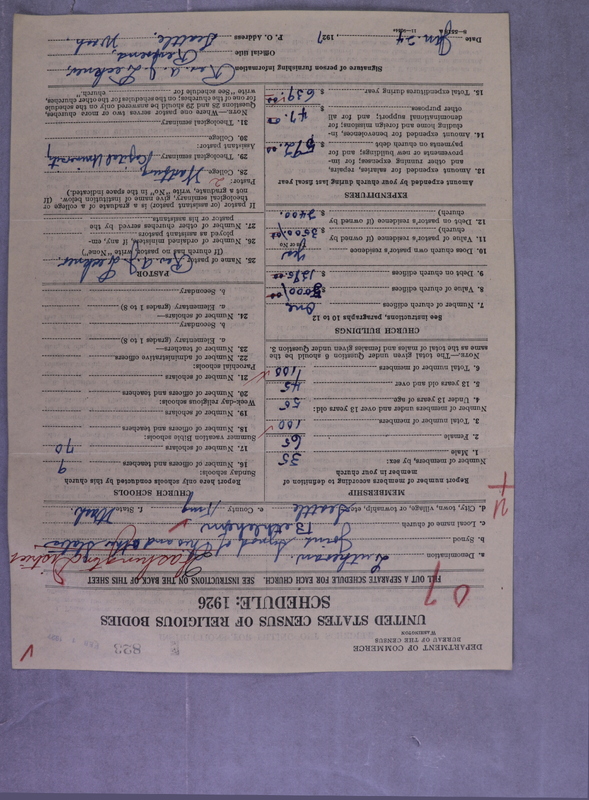 823
DEPARTMENT OF COMMERCE
BUREAU OF THE CENSUS
WASHINGTON
UNITED STATES CENSUS OF RELIGIOUS BODIES
SCHEDULE: 1926
FILL OUT A SEPARATE SCHEDULE FOR EACH CHURCH. SEE INSTRUCTIONS ON THE BACK OF THIS SHEET
a. Denomination Lutheran
b. Synod Joint Synod of Ohio and other States
c. Local name of church Bethlehem
d. City, town, village, or township, etc. Seattle e. County King f. State Wash.
MEMBERSHIP
Report number of members according to definition of member in your church
Number of members, by sex:
1. Male 35
2. Female 65
3. Total number of members 100
Number of members under and over 13 years old:
4. Under 13 years of age
5. 13 years old and over 45
6. Total number of members 100
NOTE.—The total given under Question 6 should be the same as the total of males and females given under Question 3.
CHURCH BUILDINGS
See instructions, paragraphs 10 to 12
7. Number of church edifices one
8. Value of church edifices $
9. Debt on church edifices $
10. Does church own pastor's residence yes
(Yes or No)
11. Value of pastor's residence (if owned by church) $ 3500.00
12. Debt on pastor's residence (if owned by church) $ 2400.
EXPENDITURES
Amount expended by your church during last fiscal year
13. Amount expended for salaries, repairs, and other running expenses; for improvements or new building; and for payments on church debt $ 592.00
14. Amount expended for benevolences, including home and foreign missions; for denominational support; and for all other purposes $ 47.00
15. Total expenditures during year $ 639.00
CHURCH SCHOOLS
Report here only schools conducted by this church
Sunday schools:
16. Number of officers and teachers 9
17. Number of scholars 70
Summer vacation Bible schools:
18. Number of officers and teachers
19. Number of scholars
Week-day religious schools:
20. Number of officers and teachers
21. Number of scholars
Parochial schools:
22. Number of administrative officers
23. Number of teachers—
a. Elementary (grades 1 to 8)
b. Secondary
24. Number of scholars—
a. Elementary (grades 1 to 8)
b. Secondary
PASTOR
25. Name of pastor Rev. A. J.
(If church has no pastor, write "None")
26. Number of ordained ministers, if any, employed as assistant pastors
27. Number of other churches served by the pastor or his assistants
If pastor (or assistant pastor) is a graduate of a college or theological seminary, give name of institution below. (If not a graduate, write "No" in the space indicated.)
Pastor: 2
28. College Wartburg
29. Theological seminary Capital University
Assistant pastor:
30. College
31. Theological seminary
NOTE.—Where one pastor serves two or more churches, Questions 25 and 28 should be answered only on the schedule for one of the churches; on the schedule for the other churches, write "See schedule for church."
Signature of person furnishing information Rev. A. J.
Official title
P. O. Address Seattle, Wash.
Date Jan. 24, 1927